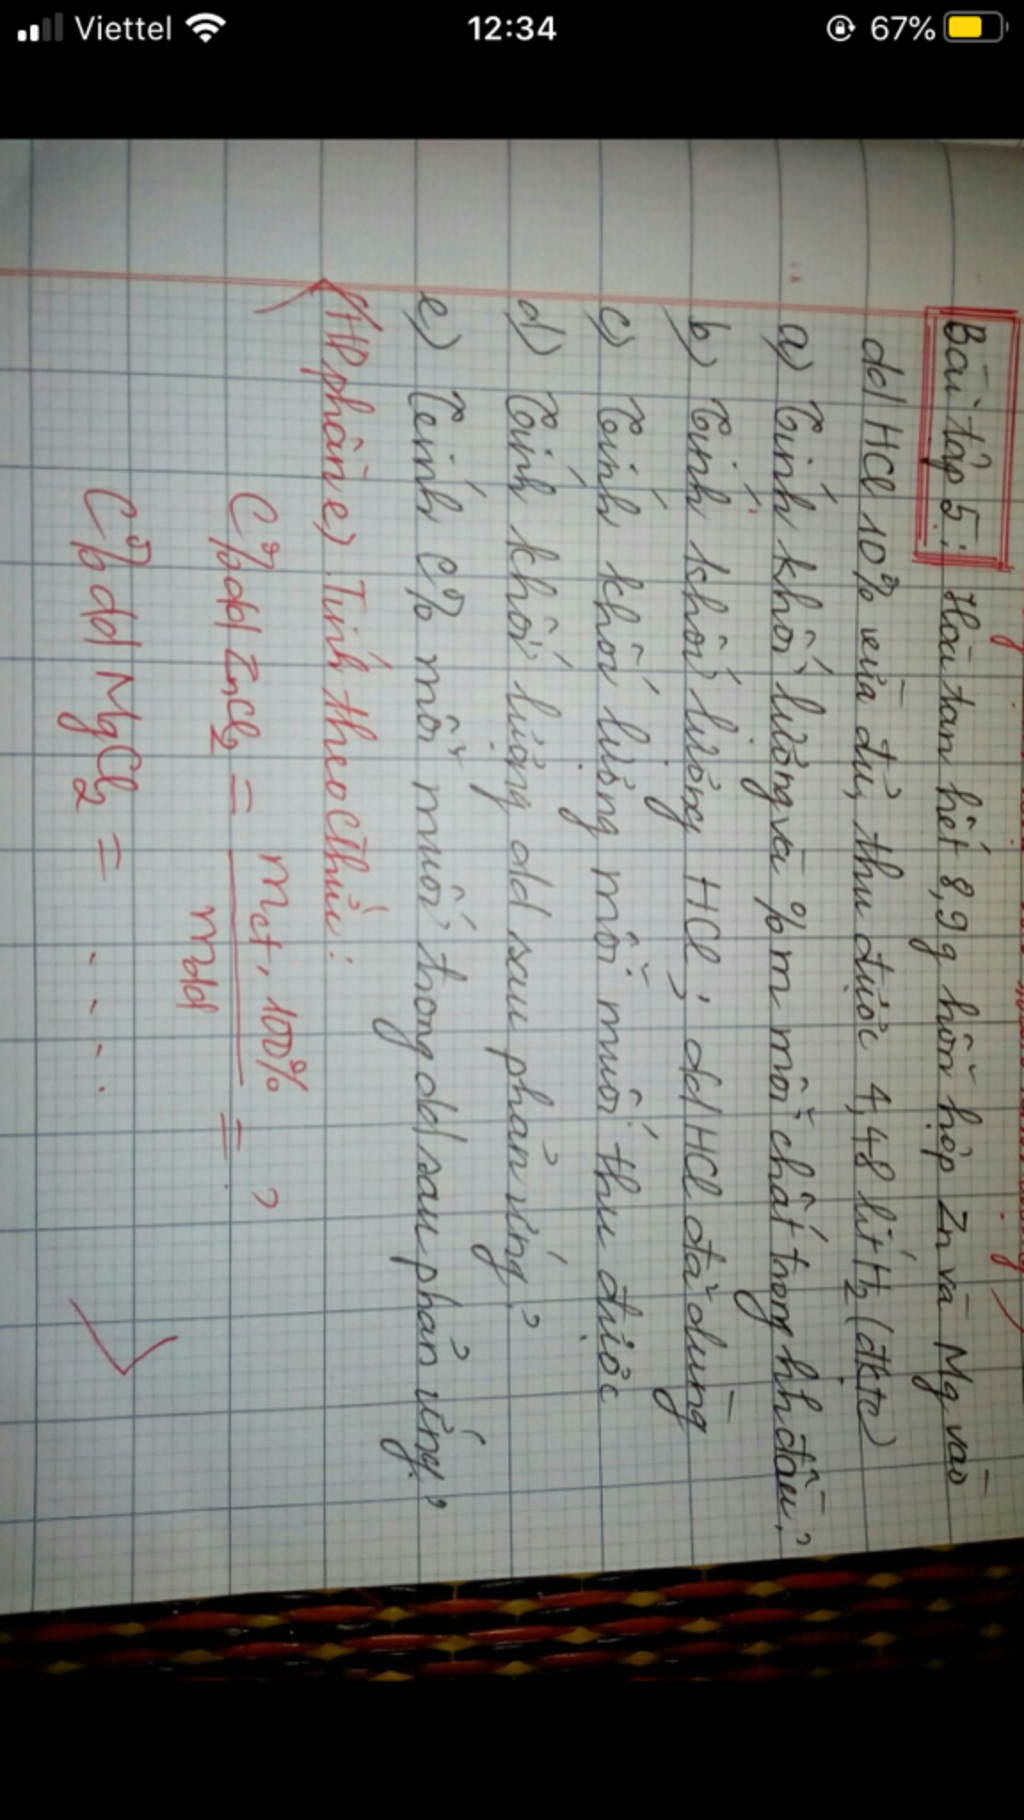 Viettel
12:34
67%
Bài tập 5: Hòa tan hết 8,9g hỗn hợp Zn và Mg vào
dd HCl 10% vừa đủ, thu được 4,48 lít H₂ (đktc)
a) Tính khối lượng và % m mỗi chất trong hh đầu?
b) Tính khối lượng HCl; dd HCl đã dùng
c) Tính khối lượng mỗi muối thu được
d) Tính khối lượng dd sau phản ứng?
e) Tính C% mỗi muối trong dd sau phản ứng?
(HD phần e) Tính theo CThức:
C% dd ZnCl₂ = mct. 100% / mdd = ?
C% dd MgCl₂ = . . . .